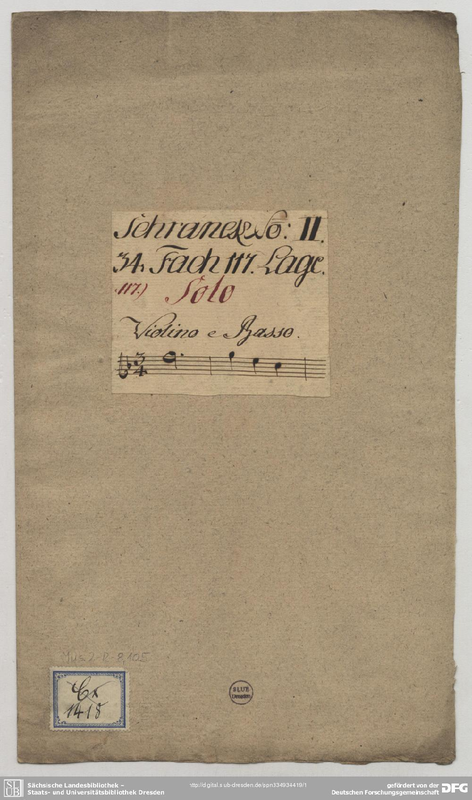 Schranck No: II.
34. Fach 117. Lage.
117.) Solo
Violino e Basso.
3
4
Mus. 2-R-8,105
Cx
1418
SLUB
Dresden
SLUB
Sächsische Landesbibliothek –
Staats- und Universitätsbibliothek Dresden
http://digital.slub-dresden.de/ppn334934419/1
gefördert von der
Deutschen Forschungsgemeinschaft
DFG